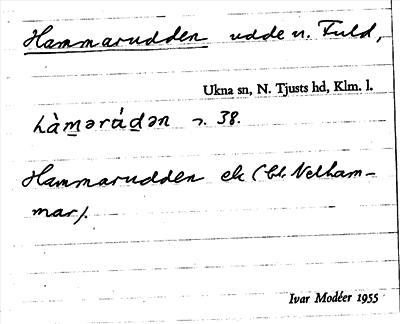 Hammarudden udde n. Fuld,
Ukna sn, N. Tjusts hd, Klm. l.
hàm̲ərád̲ən 38.
Hammarudden ek (bl. Nelham-
mar).
Ivar Modéer 1955